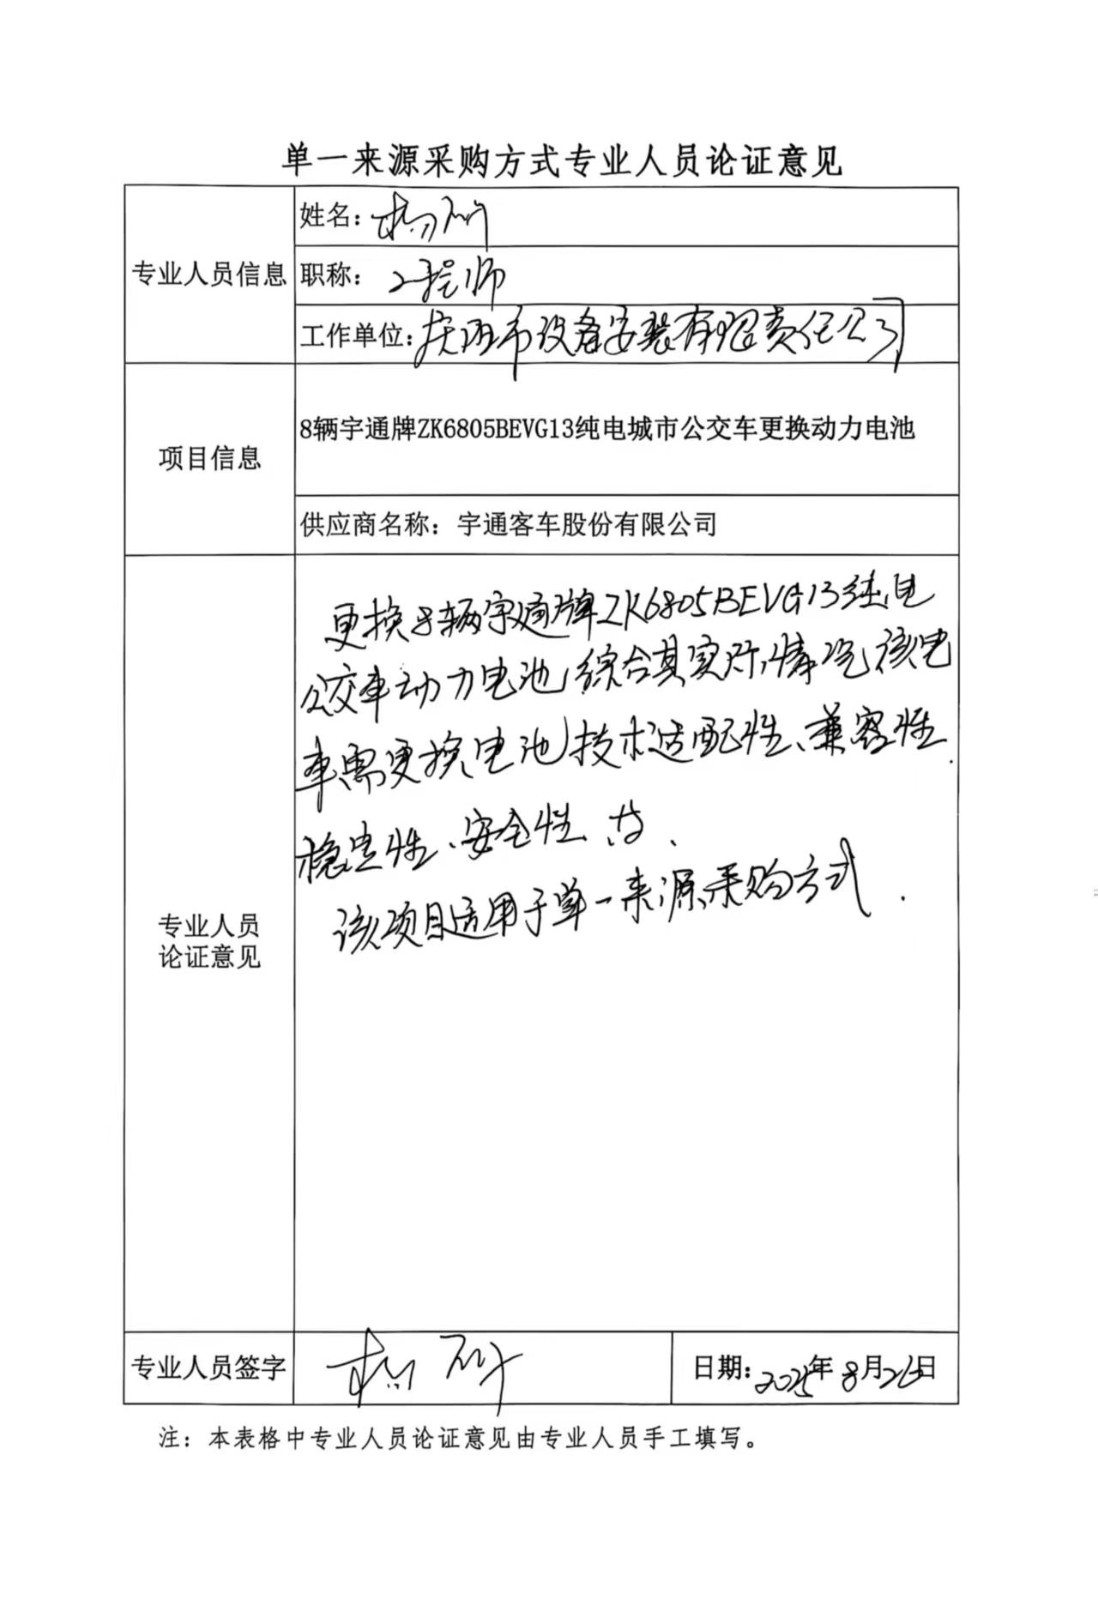 单一来源采购方式专业人员论证意见
专业人员信息
姓名：杨
职称：工程师
工作单位：庆阳市设备安装有限责任公司
项目信息
8辆宇通牌ZK6805BEVG13纯电城市公交车更换动力电池
供应商名称：宇通客车股份有限公司
专业人员
论证意见
更换8辆宇通牌ZK6805BEVG13纯电
公交车动力电池，综合其实际情况，该电
车需更换电池技术适配性、兼容性、
稳定性、安全性、
该项目适用于单一来源采购方式.
专业人员签字
杨
日期：2025年8月26日
注：本表格中专业人员论证意见由专业人员手工填写。